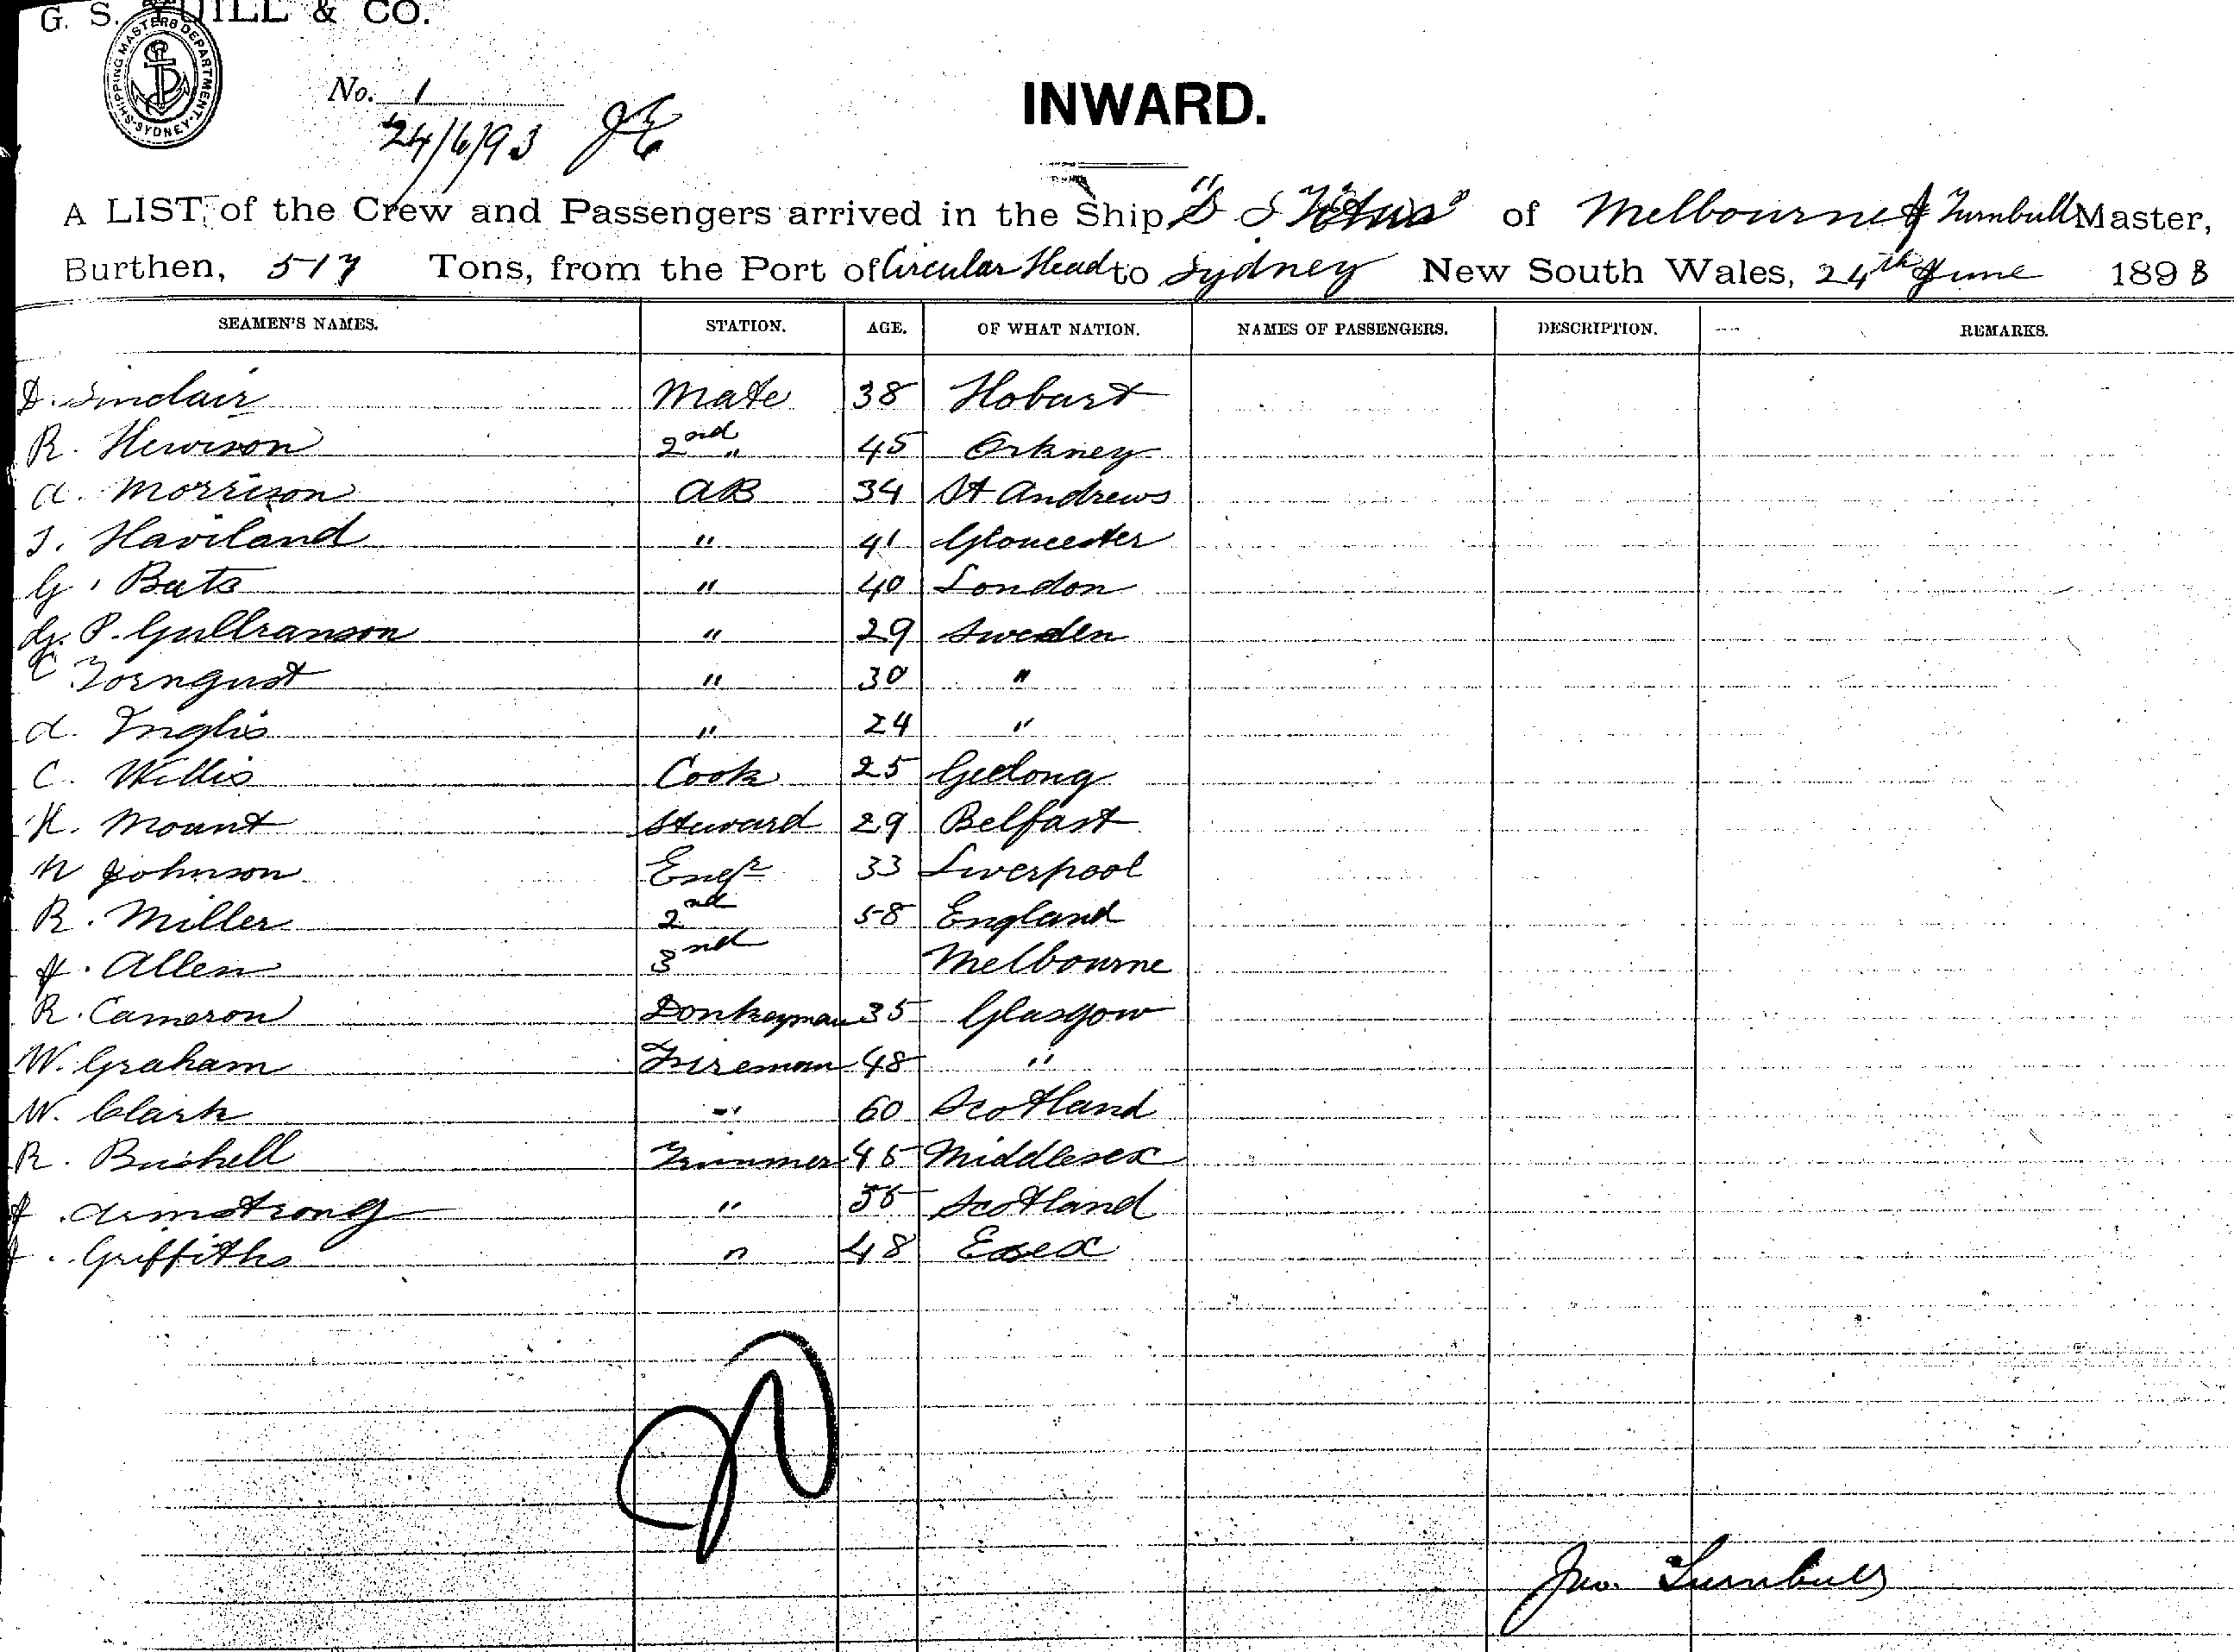 G. S. YUILL & CO.
SHIPPING MASTERS DEPARTMENT · SYDNEY
No. 1
24/6/93 JE
INWARD.
A LIST, of the Crew and Passengers arrived in the Ship "S S" of Melbourne J Turnbull Master,
Burthen, 517 Tons, from the Port of Circular Head to Sydney New South Wales, 24th June 1893
SEAMEN'S NAMES. STATION. AGE. OF WHAT NATION. NAMES OF PASSENGERS. DESCRIPTION. REMARKS.
D. Sinclair Mate 38 Hobart
R. Hewison 2nd " 45 Orkney
A. Morrison AB 34 St Andrews
T. Haviland " 41 Gloucester
G. Bats " 40 London
G. P. Gullranson " 29 Sweden
C Tornqust " 30 "
A. Inglis " 24 "
C. Willis Cook 25 Geelong
H. Mount Steward 29 Belfast
N Johnson Engr 33 Liverpool
R. Miller 2nd 58 England
J. Allen 3nd Melbourne
R. Cameron Donkeyman 35 Glasgow
W. Graham Fireman 48 "
W. Clark " 60 Scotland
R. Bushell Trimmer 45 Middlesex
J. Armstrong " 55 Scotland
J. Griffiths " 48 Essex
Jno. Turnbull